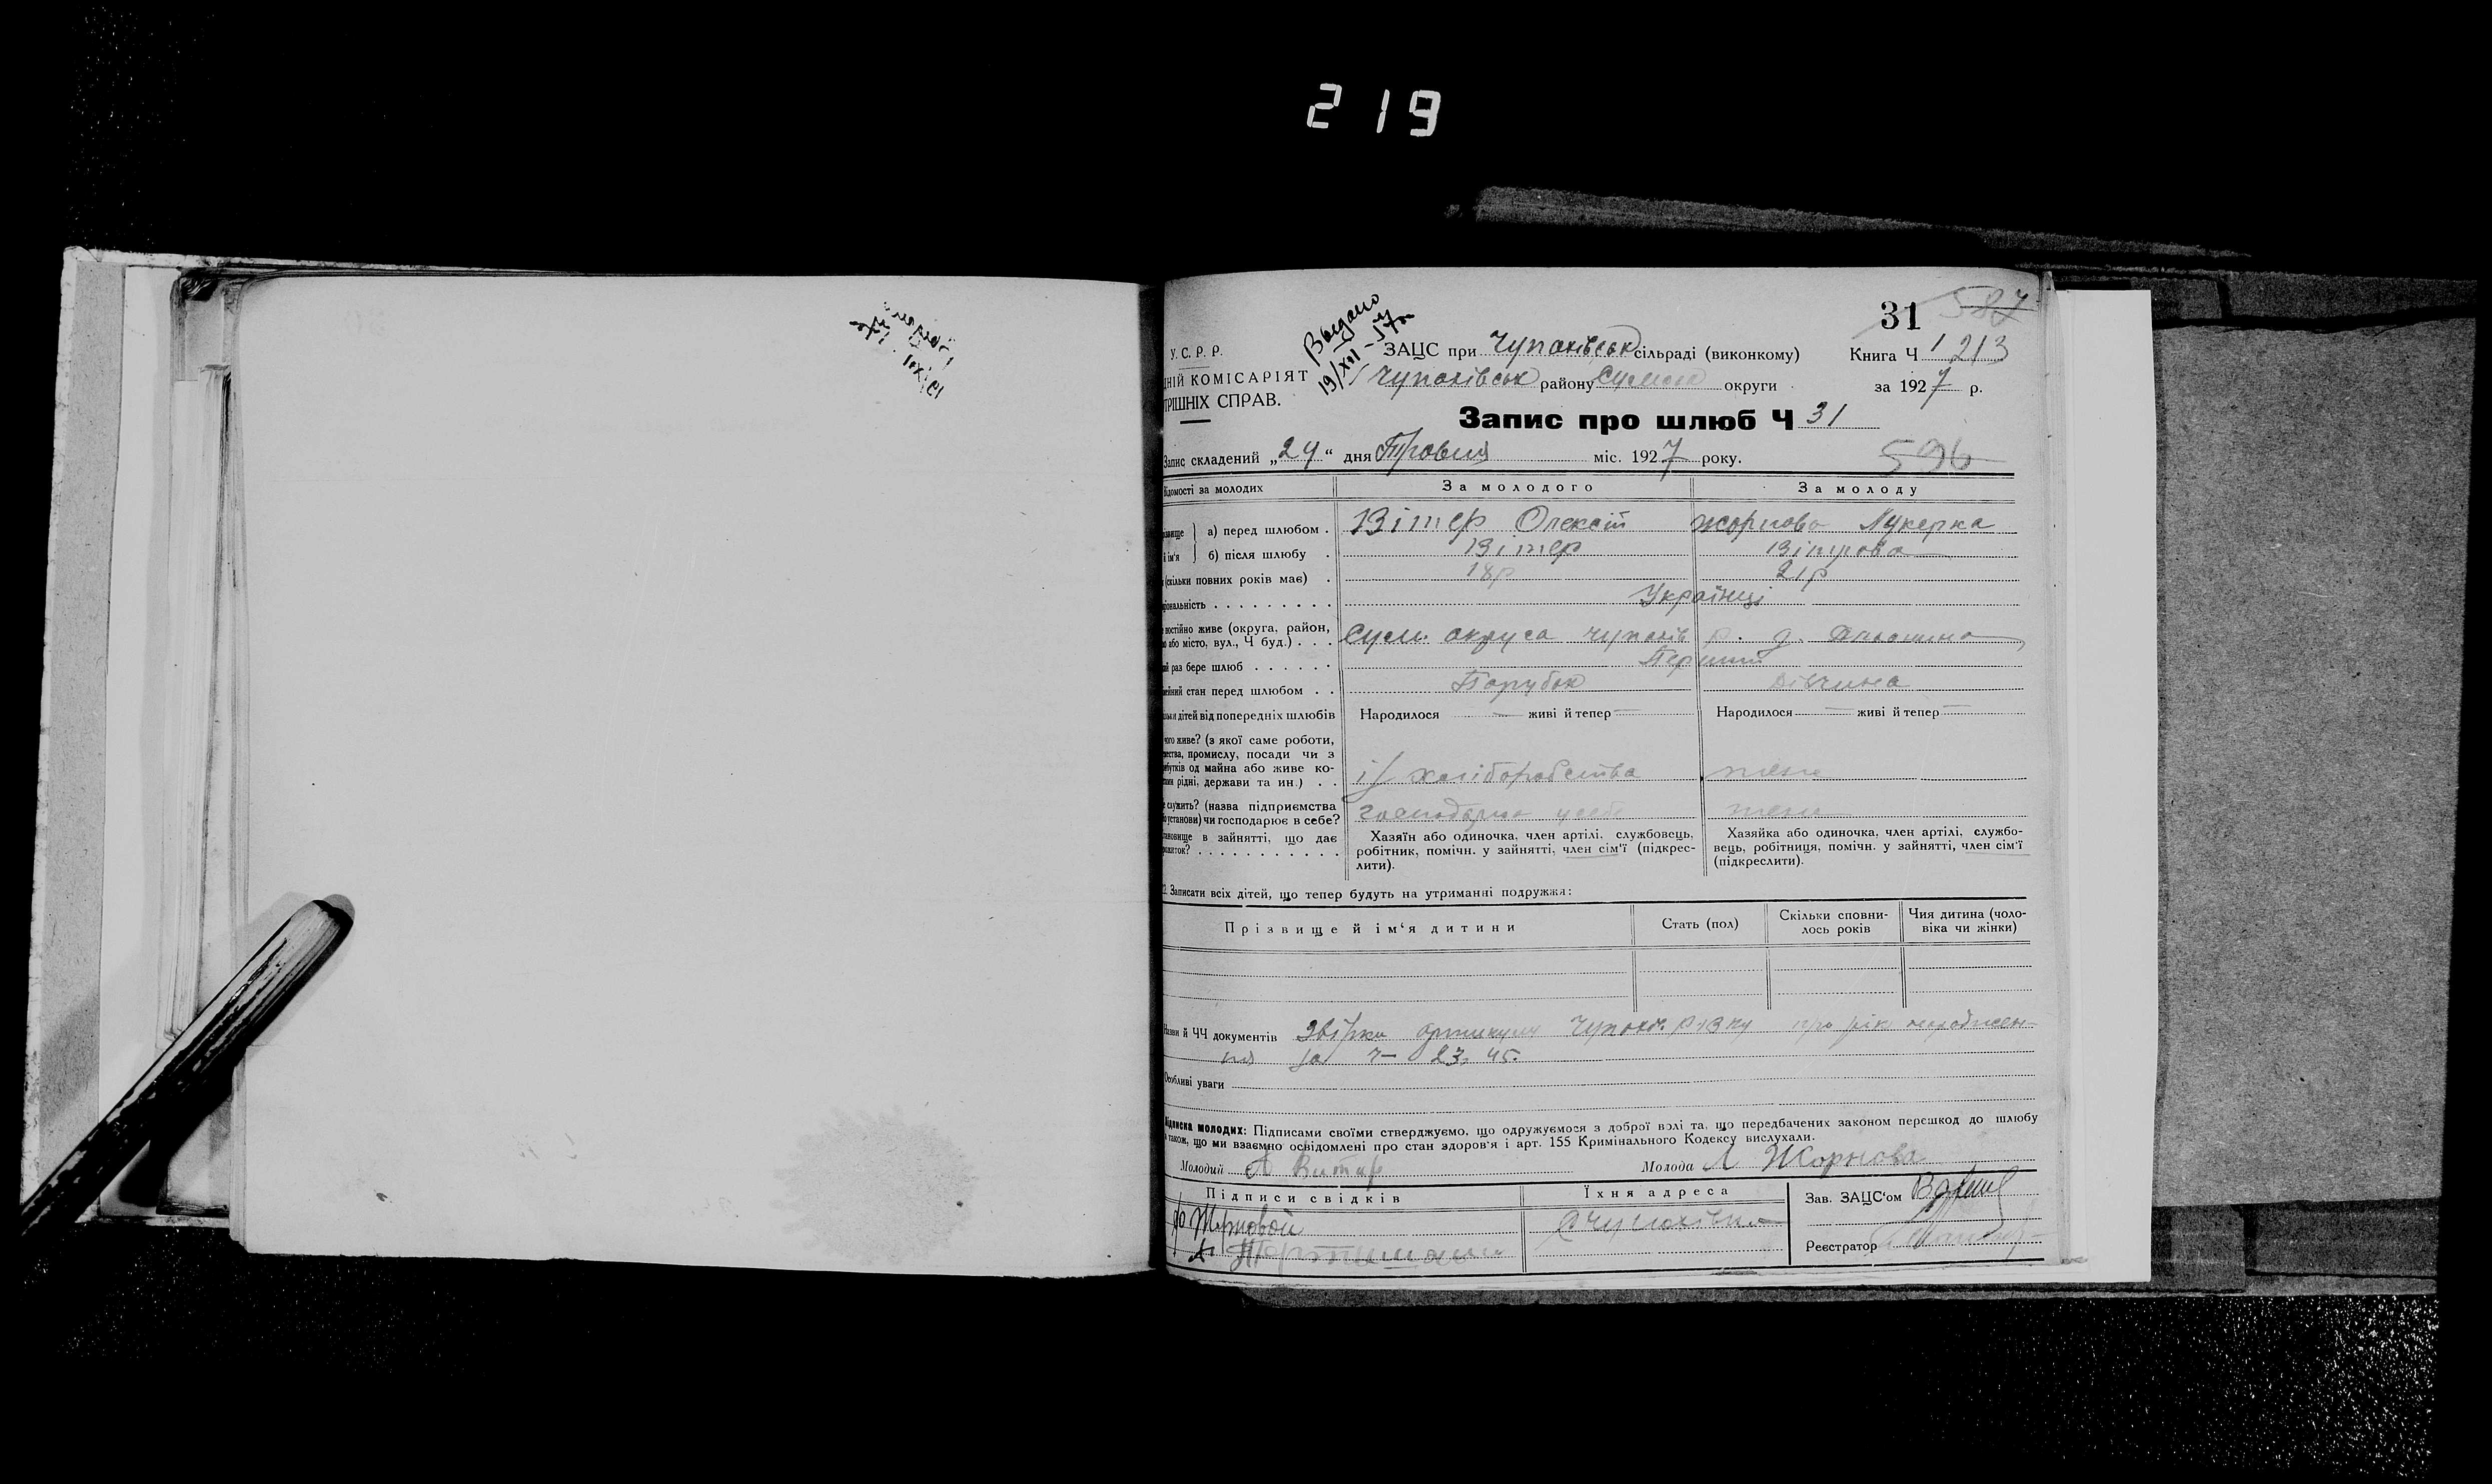 219
31 587
Выдано
19/XII-57г
У. С. Р. Р.
ЗАЦС при Чупахівськ сільраді (виконкому)
Книга Ч 1 213
ДНІЙ КОМІСАРІЯТ
Чупахівськ району Сумськ округи
за 1927 р.
ТРІШНІХ СПРАВ.
Запис про шлюб Ч 31
Запис складений „24“ дня Травня міс. 1927 року.
596
Відомості за молодих
За молодого
За молоду
а) перед шлюбом . Вітер Олексій Жорнова Лукерка
й ім'я б) після шлюбу . Вітер Вітрова
(скільки повних років має) . 18р 21р
ціональність . . . . . . . . . Українці
е постійно живе (округа, район,
або місто, вул., Ч буд.) . . . Сум. округа Чупахів р.
ий раз бере шлюб . . . . . . Перший
мейний стан перед шлюбом . . Парубок Дівчина
ільки дітей від попередніх шлюбів Народилося — живі й тепер — Народилося — живі й тепер —
чого живе? (з якої саме роботи,
мества, промислу, посади чи з
ибутків од майна або живе ко-
тами рідні, держави та ин.) . . із хліборобства теж
е служить? (назва підприємства
бо установи) чи господарює в себе? теж
тановище в зайнятті, що дає
рожиток? . . . . . . . . . . .
Хазяїн або одиночка, член артілі, службовець,
робітник, помічн. у зайнятті, член сім'ї (підкрес-
лити).
Хазяйка або одиночка, член артілі, службо-
вець, робітниця, помічн. у зайнятті, член сім'ї
(підкреслити).
2. Записати всіх дітей, що тепер будуть на утриманні подружжа:
Прізвище й ім'я дитини
Стать (пол)
Скільки сповни-
лось років
Чия дитина (чоло-
віка чи жінки)
Назви й ЧЧ документів Чупахів. про рік народжен-
ня за ч— 23, 45.
Особливі уваги
Підписка молодих: Підписами своїми стверджуємо, що одружуємося з доброї волі та, що передбачених законом перешкод до шлюбу
а також, що ми взаємно освідомлені про стан здоров'я і арт. 155 Кримінального Кодексу вислухали.
Молодий А Витер
Молода Л Жорнова
Підписи свідків
Їхня адреса
Зав. ЗАЦС'ом
Жорновой
с Чупахівка
Реєстратор